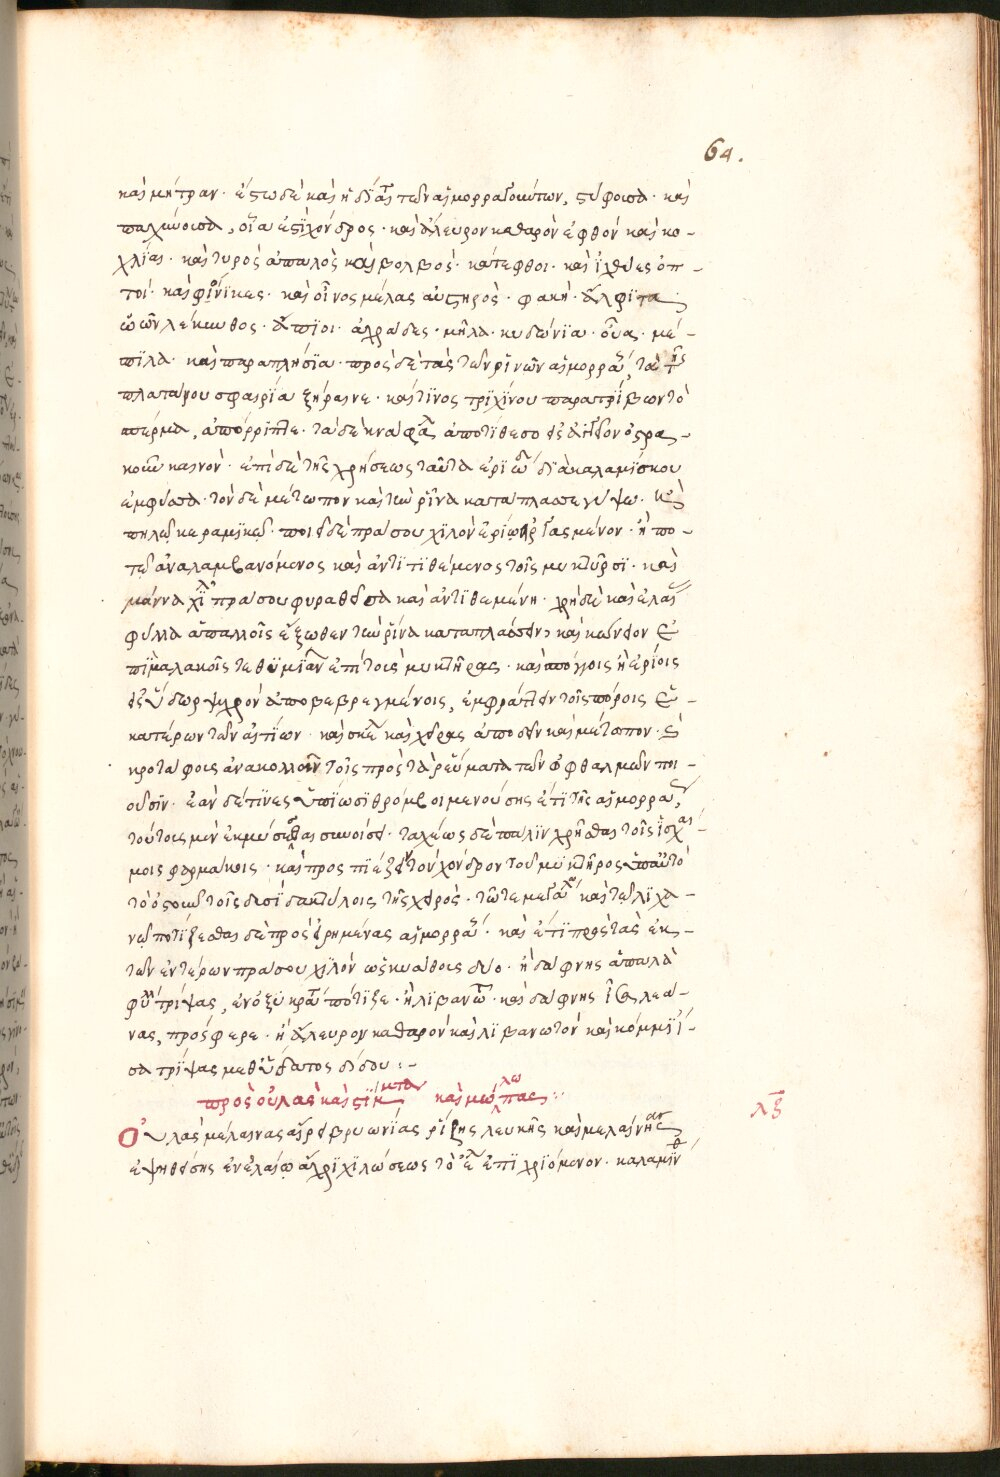 64.
καὶ μήτραν· ἔστω δὲ καὶ ἡ δίαι τῶν αἱμορραγούντων, στύφουσα· καὶ
παχύνουσα, οἷα ἐστὶ χόνδρος· καὶ ἄλευρον καθαρὸν ἑφθὸν καὶ κο-
χλίαι· καὶ τυρὸς ἁπαλὸς καὶ βολβοὶ· κάτεφθοι· καὶ ἰχθύες ὀπ-
τοί· καὶ φοίνικες· καὶ οἶνος μέλας αὐστηρὸς· φακῆ· ἄλφιτα
ὠῶν λέκυθος· ἄπιοι· ἀχράδες· μῆλα· κυδώνια· οὖας· μέ-
σπιλα· καὶ παραπλήσια· πρὸς δὲ τὰς τῶν ῥινῶν αἱμορρα, τὰ τῆς
πλατάνου σφαιρία ξήραινε· καὶ τινος τριχίνου παρατρίβων τὸ
σπέρμα, ἀπόρριπτε· τὰ δὲ κναφα ἀποτίθεσο εἰς ἀγγεῖον ὀστρα-
κοῦν καινόν· ἐπὶ δὲ τῆς χρήσεως ταῦτα διὰ καλαμίσκου
ἐμφύσα· τὸν δὲ μέτωπον καὶ τὴν ῥῖνα κατάπλασσε γύψω· καὶ
πηλῷ κεραμικῷ· ποιεῖ δὲ πράσου χιλὸν ἐρίῳ· ἢ πο-
τε ἀναλαμβανόμενος καὶ ἀντιτιθέμενος τοῖς μυκτῆρσι· καὶ
μάννα χι πράσου φυραθεῖσα καὶ ἀντιθεμένη· χρὴ δὲ καὶ ἐλαι
φύλλα ἁπαλοῖς ἔξωθεν τὴν ῥῖνα καταπλάσσειν καὶ κώνειον
ὑποθυμιᾶν ἐπὶ τοὺς μυκτῆρας· καὶ σπόγγοις ἢ ἐρίοις
εἰς ὕδωρ ψυχρὸν ἀποβεβρεγμένοις, ἐμφράττειν τοῖς πόροις
κατέρων τῶν ὠτίων· καὶ σκέ καὶ χεῖρας ἀποδεῖν καὶ μέτωπον·
κροτάφοις ἀνακολλᾶν τοῖς πρὸς τὰ ῥεύματα τῶν ὀφθαλμῶν ποι-
οῦσιν· ἐὰν δέ τινες ὑπίωσι θρόμβοι μενούσης ἔτι τῆς αἱμορρα,
τούτους μὲν ἐκμύσεσθαι συνοίσει· ταχέως δὲ πάλιν χρῆσθαι τοῖς ἰσχαί-
μοις φαρμάκοις· καὶ πρὸς πιέζειν τὸν χόνδρον τοῦ μυκτῆρος ὑπ' αὐτὸ
τὸ ὀστοῦν τοῖς δυσὶ δακτύλοις τῆς χειρὸς· τῶ τε μεγάλῳ καὶ τῷ λιχα-
νῷ ποτίζεσθαι δὲ πρὸς εἰρημένας αἱμορρα· καὶ ἔτι πρὸς τὰς ἐκ-
τῶν ἐντέρων πράσου χιλὸν ὡς κυάθους δύο· ἢ δάφνης ἁπαλὰ
φύ τρίψας, ἐν ὀξυκρά πότιζε· ἢ λιβανω· καὶ δάφνης ἴσα λεά-
νας, πρόσφερε· ἢ ἄλευρον καθαρὸν καὶ λιβανωτὸν καὶ κόμμι ἴ-
σα τρίψας μεθ' ὕδατος δίδου :-
πρὸς οὐλὰς καὶ στίγματα καὶ μώλωπας :
λξ
Οὐλὰς μελαίνας αἴρει βρυωνίας ῥίζης λευκῆς καὶ μελαίνης
ἑψηθείσης ἐν ἐλαίῳ ἄχρι χιλώσεως τὸ ἔλ ἐπιχριόμενον· καλαμίνθ